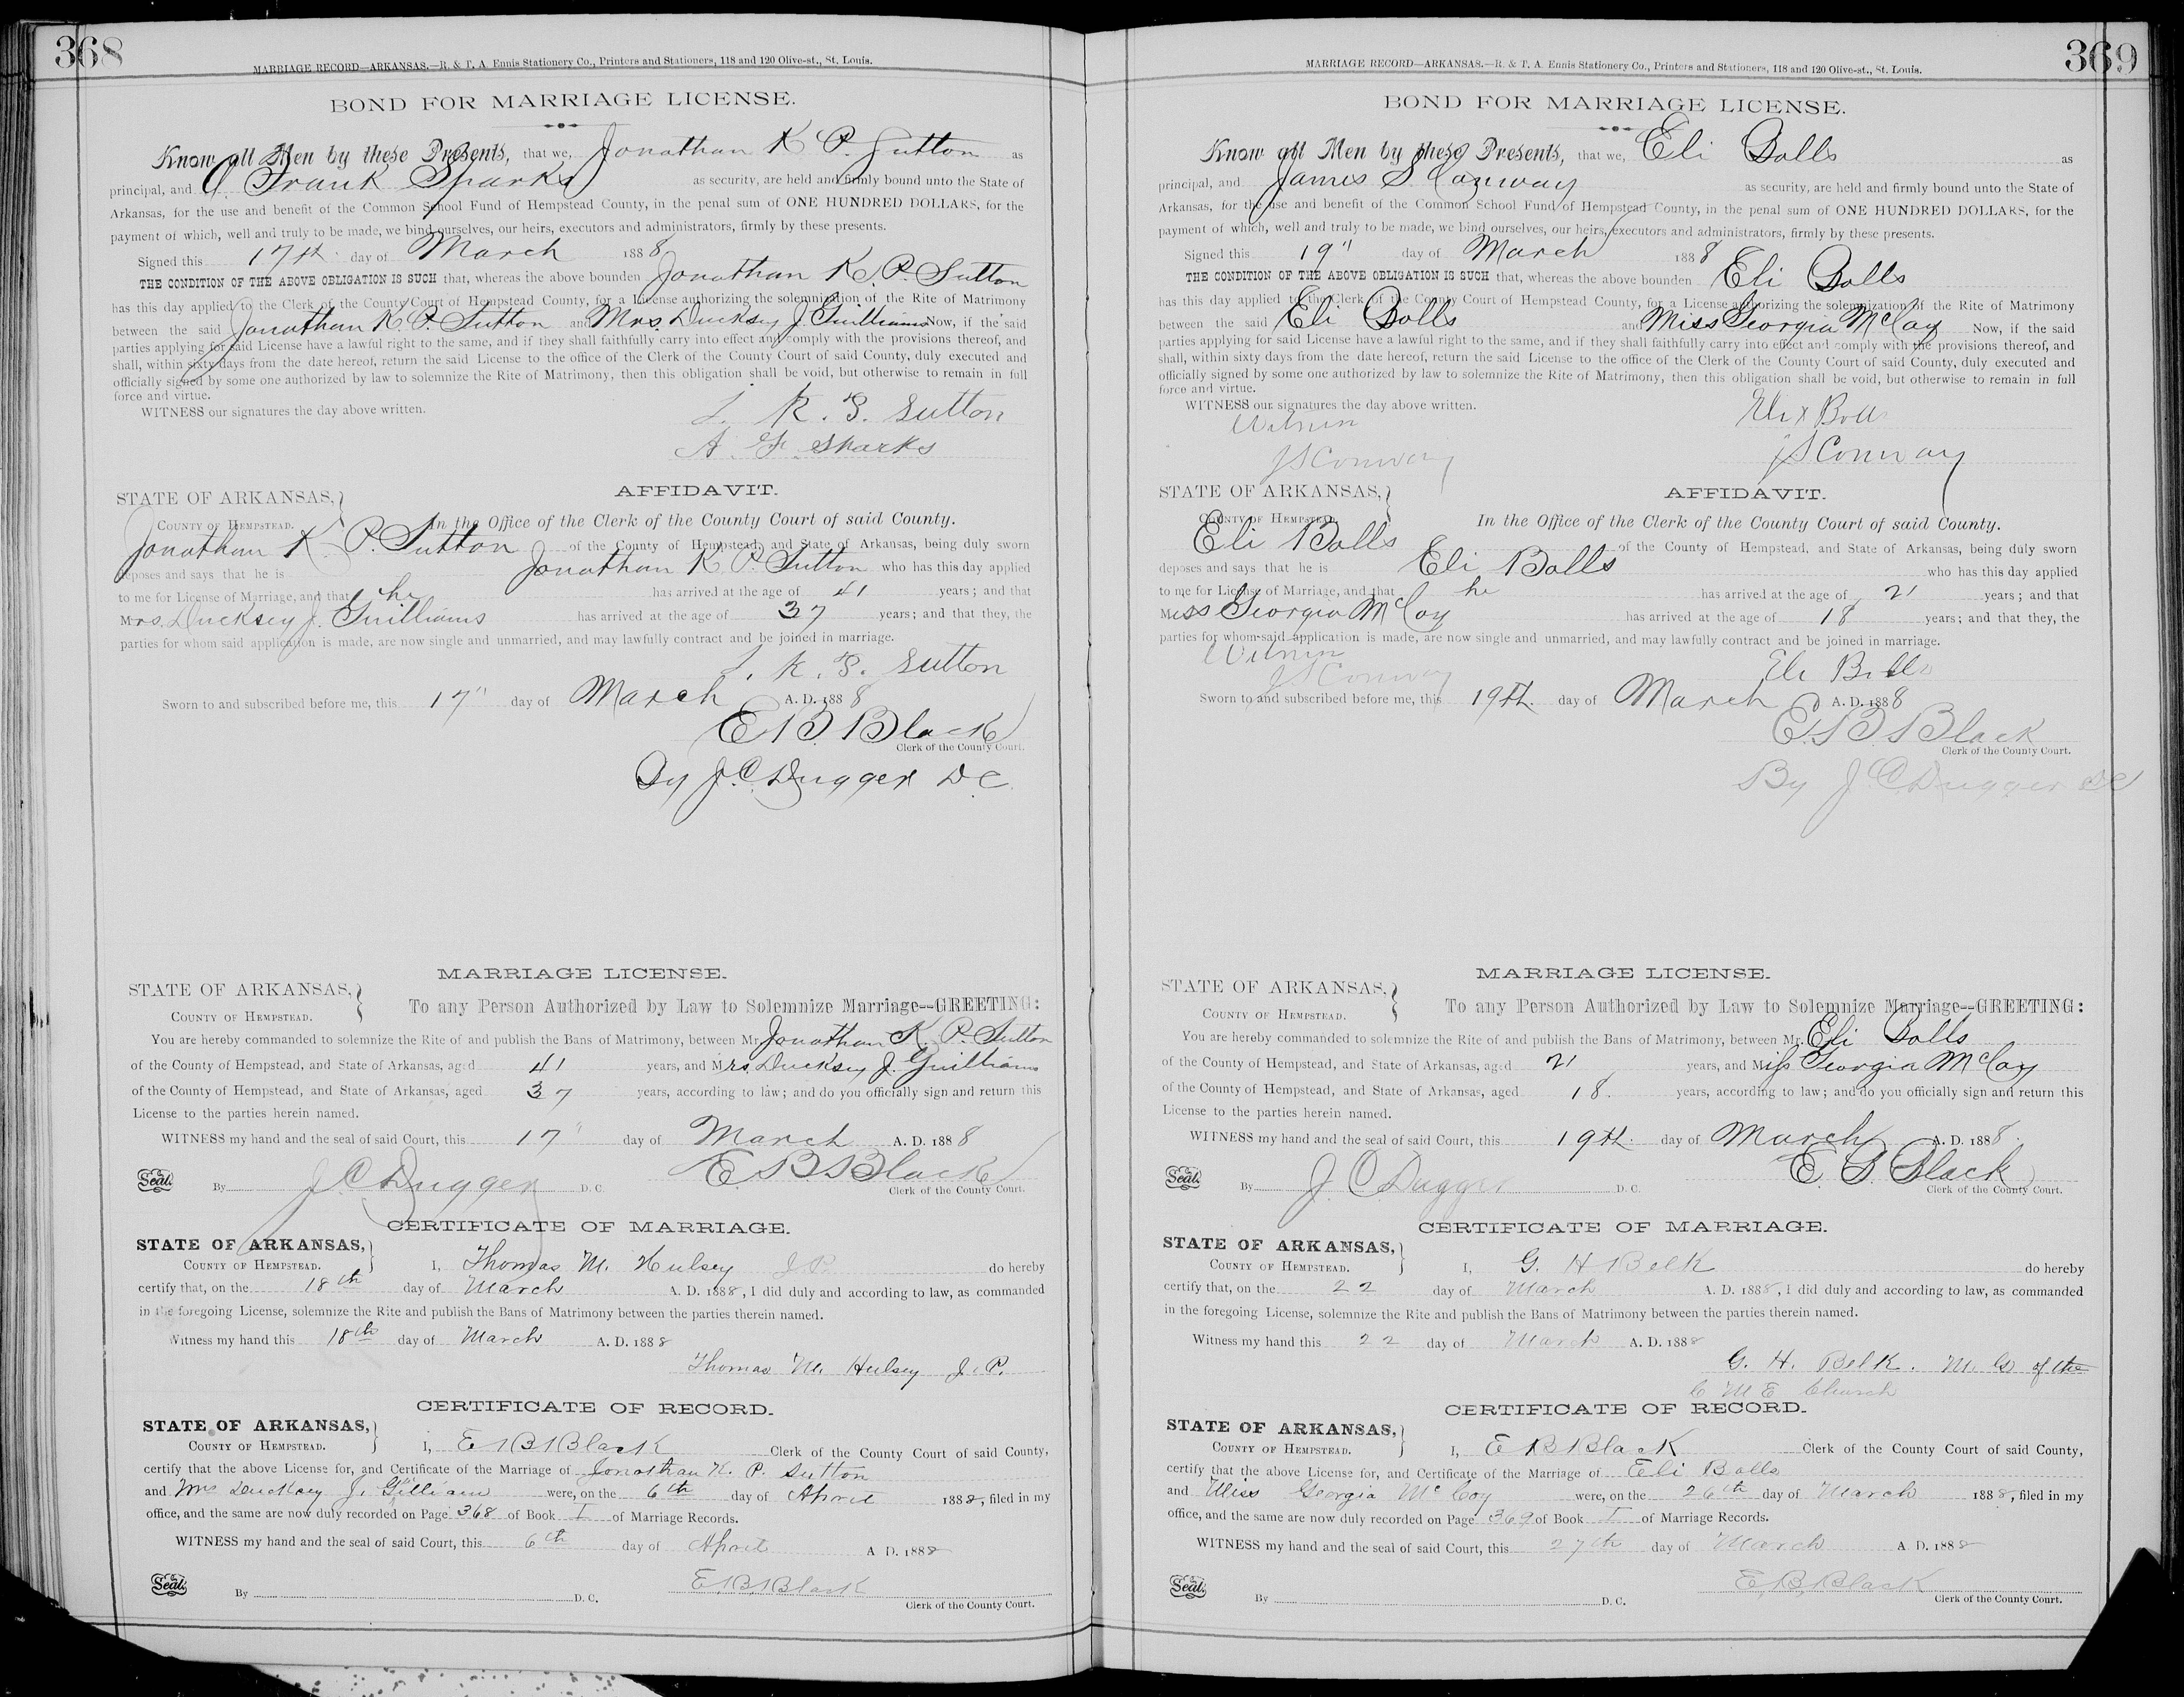 368
MARRIAGE RECORD—ARKANSAS.—R. & T. A. Ennis Stationery Co., Printers and Stationers, 118 and 120 Olive-st., St. Louis.
BOND FOR MARRIAGE LICENSE.
Know all Men by these Presents, that we, Jonathan K P. Sutton as
principal, and Frank Sparks as security, are held and firmly bound unto the State of
Arkansas, for the use and benefit of the Common School Fund of Hempstead County, in the penal sum of ONE HUNDRED DOLLARS, for the
payment of which, well and truly to be made, we bind ourselves, our heirs, executors and administrators, firmly by these presents.
Signed this 17th day of March 1888
THE CONDITION OF THE ABOVE OBLIGATION IS SUCH that, whereas the above bounden Jonathan K. P. Sutton
has this day applied to the Clerk of the County Court of Hempstead County, for a License authorizing the solemnization of the Rite of Matrimony
between the said Jonathan K. P. Sutton and Mrs. Ducksey J. Guilliams Now, if the said
parties applying for said License have a lawful right to the same, and if they shall faithfully carry into effect and comply with the provisions thereof, and
shall, within sixty days from the date hereof, return the said License to the office of the Clerk of the County Court of said County, duly executed and
officially signed by some one authorized by law to solemnize the Rite of Matrimony, then this obligation shall be void, but otherwise to remain in full
force and virtue.
WITNESS our signatures the day above written.
K. Sutton
A. F. Sparks
STATE OF ARKANSAS,
COUNTY OF HEMPSTEAD.
AFFIDAVIT.
In the Office of the Clerk of the County Court of said County.
Jonathan K. P. Sutton of the County of Hempstead, and State of Arkansas, being duly sworn
deposes and says that he is Jonathan K P. Sutton who has this day applied
to me for License of Marriage, and that he has arrived at the age of 41 years; and that
Mrs. Ducksey J. Guilliams has arrived at the age of 37 years; and that they, the
parties for whom said application is made, are now single and unmarried, and may lawfully contract and be joined in marriage.
K. Sutton
Sworn to and subscribed before me, this 17" day of March A. D. 1888
E B Black
Clerk of the County Court.
By J. C. Dugger D C
MARRIAGE LICENSE.
STATE OF ARKANSAS,
COUNTY OF HEMPSTEAD.
To any Person Authorized by Law to Solemnize Marriage—GREETING:
You are hereby commanded to solemnize the Rite of and publish the Bans of Matrimony, between Mr. Jonathan K. P. Sutton
of the County of Hempstead, and State of Arkansas, aged 41 years, and Mrs. Ducksey J. Guilliams
of the County of Hempstead, and State of Arkansas, aged 37 years, according to law; and do you officially sign and return this
License to the parties herein named.
WITNESS my hand and the seal of said Court, this 17" day of March A. D. 1888
Seal. By J C Dugger D. C. E. B Black
Clerk of the County Court.
CERTIFICATE OF MARRIAGE.
STATE OF ARKANSAS,
COUNTY OF HEMPSTEAD.
I, Thomas M. Hulsey J P do hereby
certify that, on the 18th day of March A. D. 1888, I did duly and according to law, as commanded
in the foregoing License, solemnize the Rite and publish the Bans of Matrimony between the parties therein named.
Witness my hand this 18th day of March A. D. 1888
Thomas M. Hulsey J. P.
CERTIFICATE OF RECORD.
STATE OF ARKANSAS,
COUNTY OF HEMPSTEAD.
I, E B Black Clerk of the County Court of said County,
certify that the above License for, and Certificate of the Marriage of Jonathan K. P. Sutton
and Mrs Ducksey J. Gilliam were, on the 6th day of April 1888, filed in my
office, and the same are now duly recorded on Page 368 of Book I of Marriage Records.
WITNESS my hand and the seal of said Court, this 6th day of April A D. 1888
Seal. By D. C. E. B. Black
Clerk of the County Court.
369
MARRIAGE RECORD—ARKANSAS.—R. & T. A. Ennis Stationery Co., Printers and Stationers, 118 and 120 Olive-st., St. Louis.
BOND FOR MARRIAGE LICENSE.
Know all Men by these Presents, that we, Eli Bolls as
principal, and James S Conway as security, are held and firmly bound unto the State of
Arkansas, for the use and benefit of the Common School Fund of Hempstead County, in the penal sum of ONE HUNDRED DOLLARS, for the
payment of which, well and truly to be made, we bind ourselves, our heirs, executors and administrators, firmly by these presents.
Signed this 19" day of March 1888
THE CONDITION OF THE ABOVE OBLIGATION IS SUCH that, whereas the above bounden Eli Bolls
has this day applied to the Clerk of the County Court of Hempstead County, for a License authorizing the solemnization of the Rite of Matrimony
between the said Eli Bolls and Miss Georgia McCoy Now, if the said
parties applying for said License have a lawful right to the same, and if they shall faithfully carry into effect and comply with the provisions thereof, and
shall, within sixty days from the date hereof, return the said License to the office of the Clerk of the County Court of said County, duly executed and
officially signed by some one authorized by law to solemnize the Rite of Matrimony, then this obligation shall be void, but otherwise to remain in full
force and virtue.
WITNESS our signatures the day above written.
Witness Eli x Bolls
J S Conway J S Conway
STATE OF ARKANSAS,
COUNTY OF HEMPSTEAD.
AFFIDAVIT.
In the Office of the Clerk of the County Court of said County.
Eli Bolls of the County of Hempstead, and State of Arkansas, being duly sworn
deposes and says that he is Eli Bolls who has this day applied
to me for License of Marriage, and that he has arrived at the age of 21 years; and that
Miss Georgia McCoy has arrived at the age of 18 years; and that they, the
parties for whom said application is made, are now single and unmarried, and may lawfully contract and be joined in marriage.
Witness
J S Conway Eli Bolls
Sworn to and subscribed before me, this 19th. day of March A. D. 1888
E. B Black
Clerk of the County Court.
By J. C. Dugger DC
MARRIAGE LICENSE.
STATE OF ARKANSAS,
COUNTY OF HEMPSTEAD.
To any Person Authorized by Law to Solemnize Marriage—GREETING:
You are hereby commanded to solemnize the Rite of and publish the Bans of Matrimony, between Mr. Eli Bolls
of the County of Hempstead, and State of Arkansas, aged 21 years, and Miss Georgia McCoy
of the County of Hempstead, and State of Arkansas, aged 18. years, according to law; and do you officially sign and return this
License to the parties herein named.
WITNESS my hand and the seal of said Court, this 19th. day of March A. D. 1888.
Seal. By J. C Dugger D. C. E. B Black
Clerk of the County Court.
CERTIFICATE OF MARRIAGE.
STATE OF ARKANSAS,
COUNTY OF HEMPSTEAD.
I, G. H Belk do hereby
certify that, on the 22 day of March A. D. 1888, I did duly and according to law, as commanded
in the foregoing License, solemnize the Rite and publish the Bans of Matrimony between the parties therein named.
Witness my hand this 22 day of March A. D. 1888
G. H. Belk. M. G of the
C M E Church
CERTIFICATE OF RECORD.
STATE OF ARKANSAS,
COUNTY OF HEMPSTEAD.
I, E B Black Clerk of the County Court of said County,
certify that the above License for, and Certificate of the Marriage of Eli Bolls
and Miss Georgia McCoy were, on the 26th day of March 1888, filed in my
office, and the same are now duly recorded on Page 369 of Book I of Marriage Records.
WITNESS my hand and the seal of said Court, this 27th day of March A. D. 1888
Seal. By D. C. E. B. Black
Clerk of the County Court.